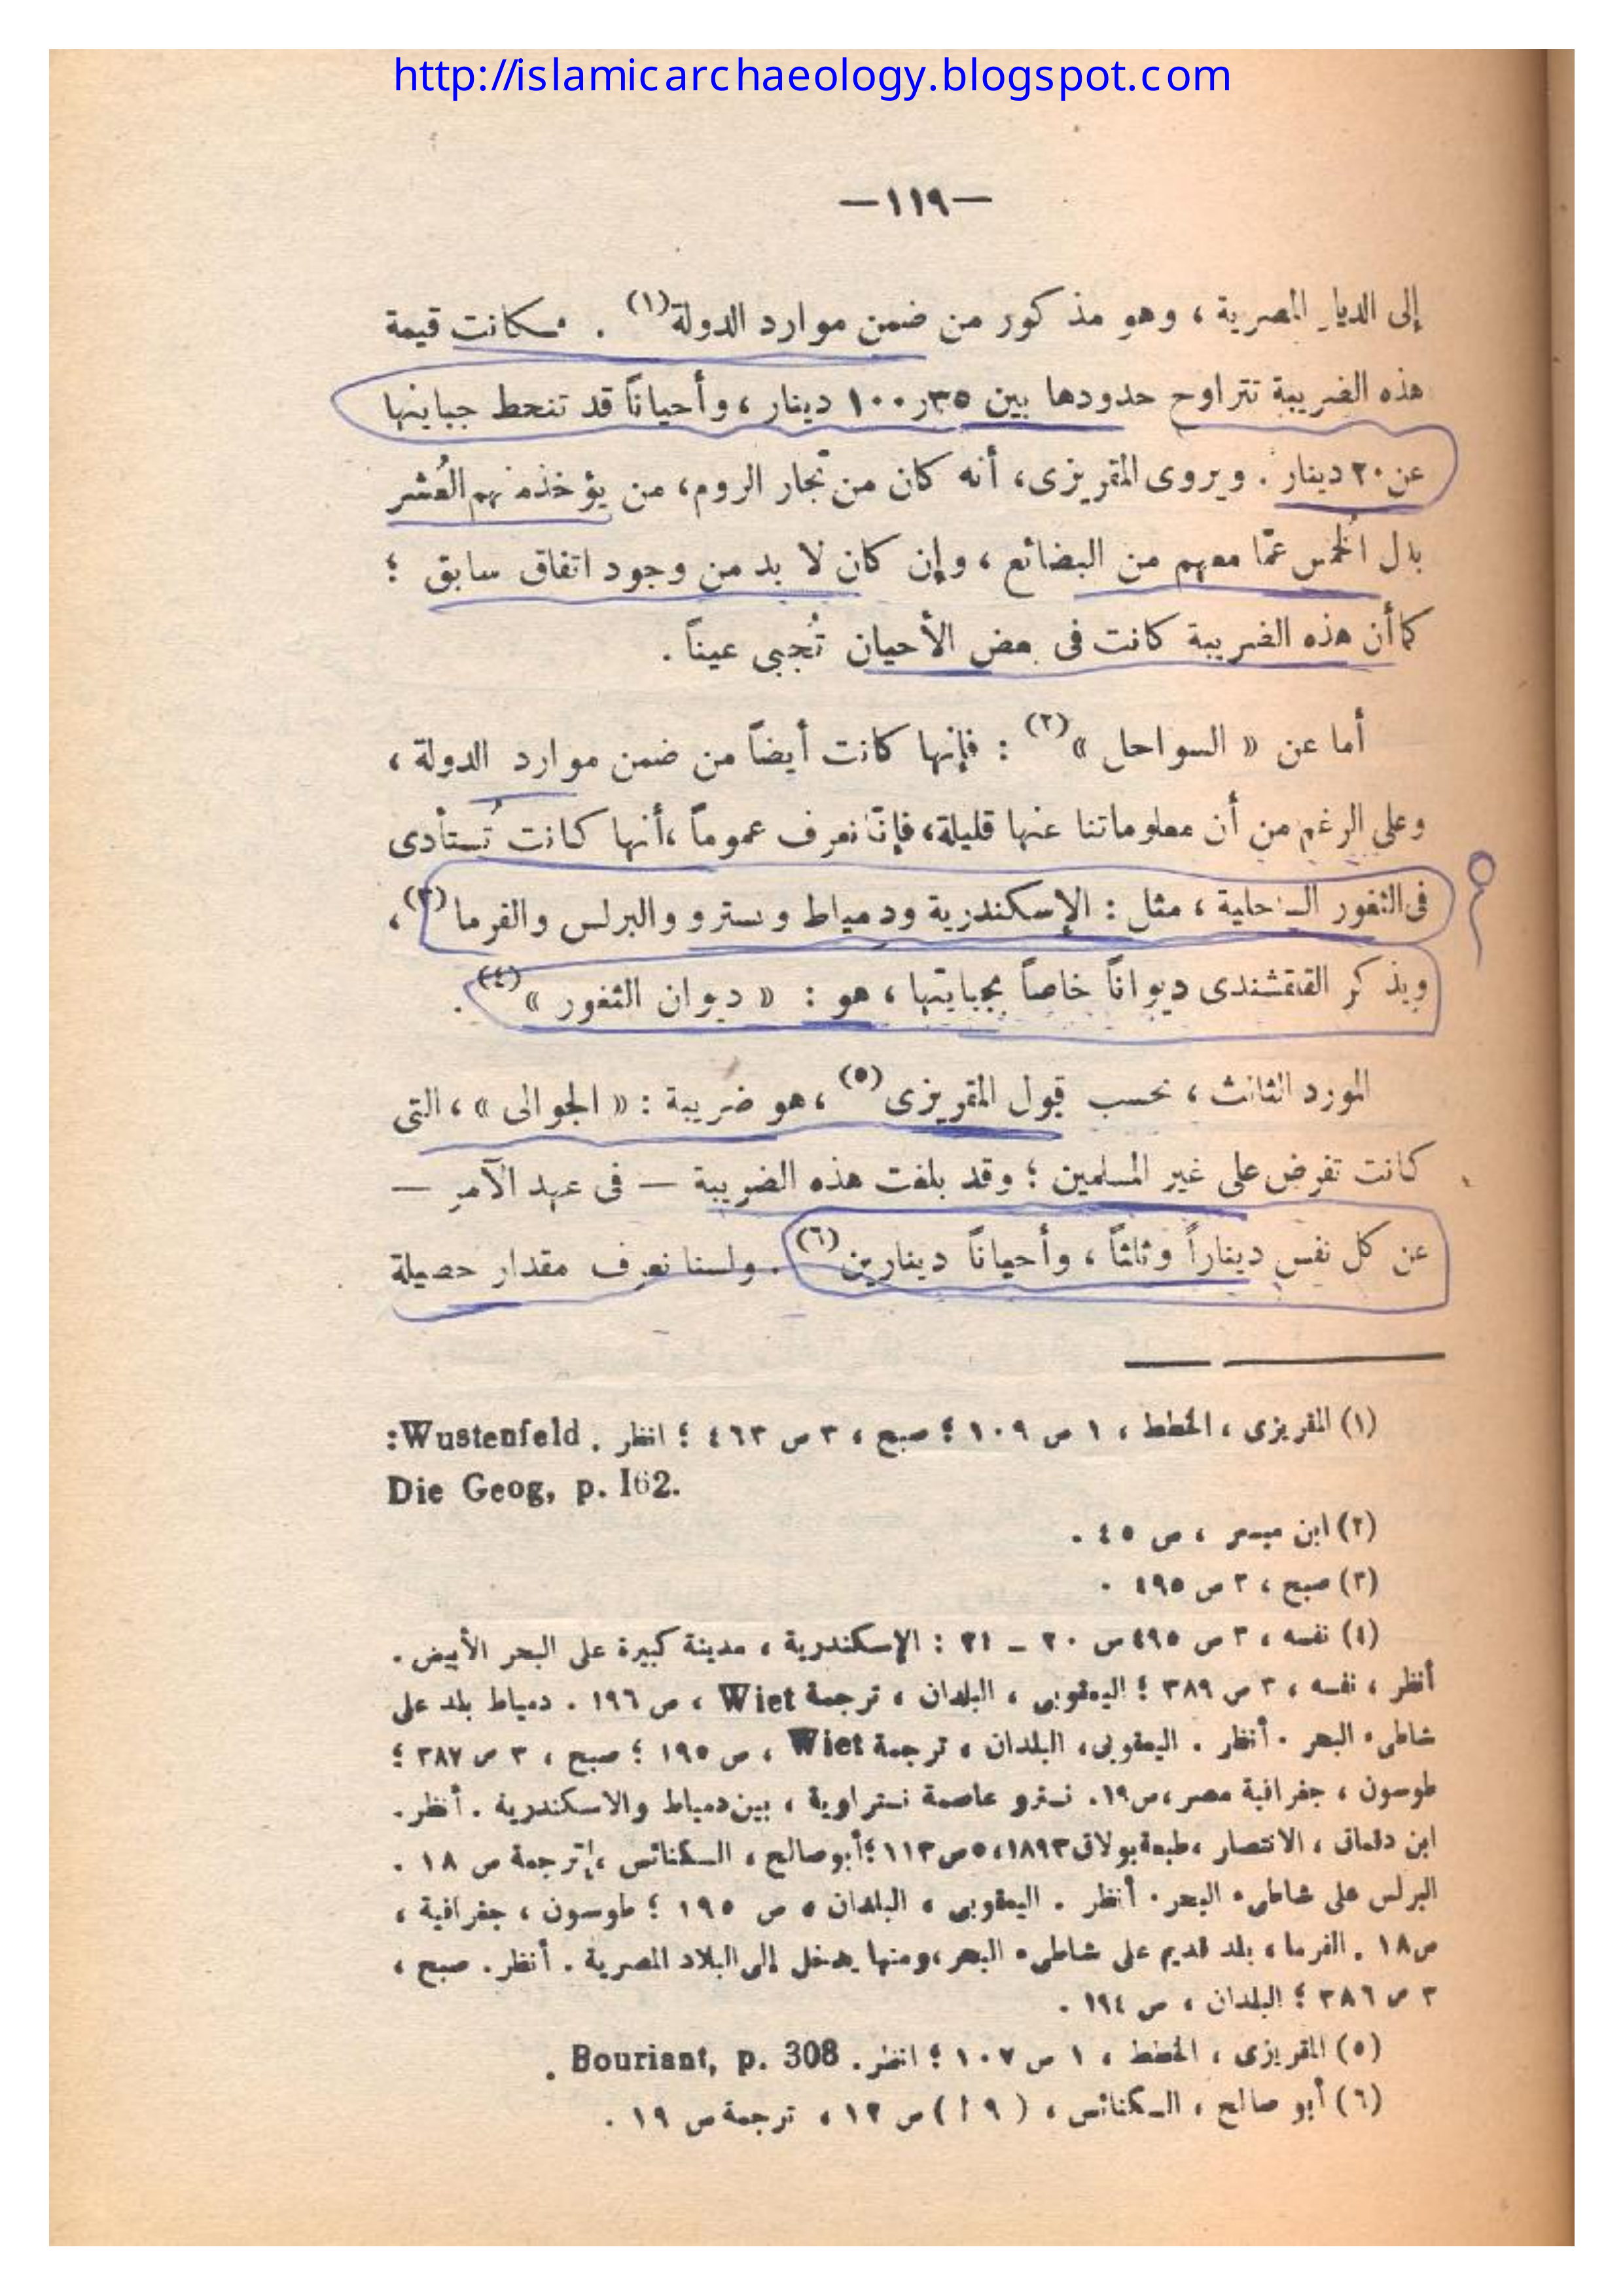 http://islamicarchaeology.blogspot.com
—١١٩—
إلى الديار المصرية ، وهو مذكور من ضمن موارد الدولة(١) . فكانت قيمة
هذه الضريبة تتراوح حدودها بين ٣٥ر١٠٠ دينار ، وأحياناً قد تنحط جبايتها
عن ٢٠ دينار . ويروى المقريزى، أنه كان من تجار الروم، من يؤخذ منهم العُشر
بدل الخُمس عمّا معهم من البضائع ، وإن كان لا بد من وجود اتفاق سابق ؛
كما أن هذه الضريبة كانت فى بعض الأحيان تُجبى عيناً .
أما عن « السواحل »(٢) : فإنها كانت أيضاً من ضمن موارد الدولة ،
وعلى الرغم من أن معلوماتنا عنها قليلة، فإنّا نعرف عموماً ،أنها كانت تُستأدى
فى الثغور الساحلية ، مثل : الإسكندرية ودمياط ونسترو والبرلس والفرما(٣) ،
ويذكر القلقشندى ديواناً خاصاً بجبايتها ، هو : « ديوان الثغور »(٤) .
المورد الثالث ، بحسب قول المقريزى(٥) ،هو ضريبة : « الجوالى » ، التى
كانت تفرض على غير المسلمين ؛ وقد بلغت هذه الضريبة — فى عهد الآمر —
عن كل نفس ديناراً وثلثاً ، وأحياناً دينارين(٦) . ولسنا نعرف مقدار حصيلة
(١) المقريزى ، الخطط ، ١ ص ١٠٩ ؛ صبح ، ٣ ص ٤٦٣ ؛ انظر . Wustenfeld:
Die Geog, p. 162.
(٢) ابن ميسر ، ص ٤٥ .
(٣) صبح ، ٣ ص ٤٩٥ .
(٤) نفسه ، ٣ ص ٤٩٥ س ٢٠ – ٢١ : الإسكندرية ، مدينة كبيرة على البحر الأبيض .
أنظر ، نفسه ، ٣ ص ٣٨٩ ؛ اليعقوبى ، البلدان ، ترجمة Wiet ، ص ١٩٦ . دمياط بلد على
شاطىء البحر . أنظر . اليعقوبى، البلدان ، ترجمة Wiet ، ص ١٩٥ ؛ صبح ، ٣ ص ٣٨٧ ؛
طوسون ، جغرافية مصر،ص١٩. نسترو عاصمة نستراوية ، بين دمياط والاسكندرية . أنظر.
ابن دقماق ، الانتصار ،طبعة بولاق١٨٩٣، ٥ص١١٣ ؛أبو صالح ، الكنائس ، ترجمة ص ١٨ .
البرلس على شاطىء البحر . أنظر . اليعقوبى ، البلدان ، ص ١٩٥ ؛ طوسون ، جغرافية ،
ص١٨ . الفرما ، بلد قديم على شاطىء البحر،ومنها يدخل إلى البلاد المصرية . أنظر. صبح ،
٣ ص ٣٨٦ ؛ البلدان ، ص ١٩٤ .
(٥) المقريزى ، الخطط ، ١ ص ١٠٧ ؛ انظر . Bouriant, p. 308 .
(٦) أبو صالح ، الكنائس ، ( ٩ ا ) ص ١٢ ، ترجمة ص ١٩ .